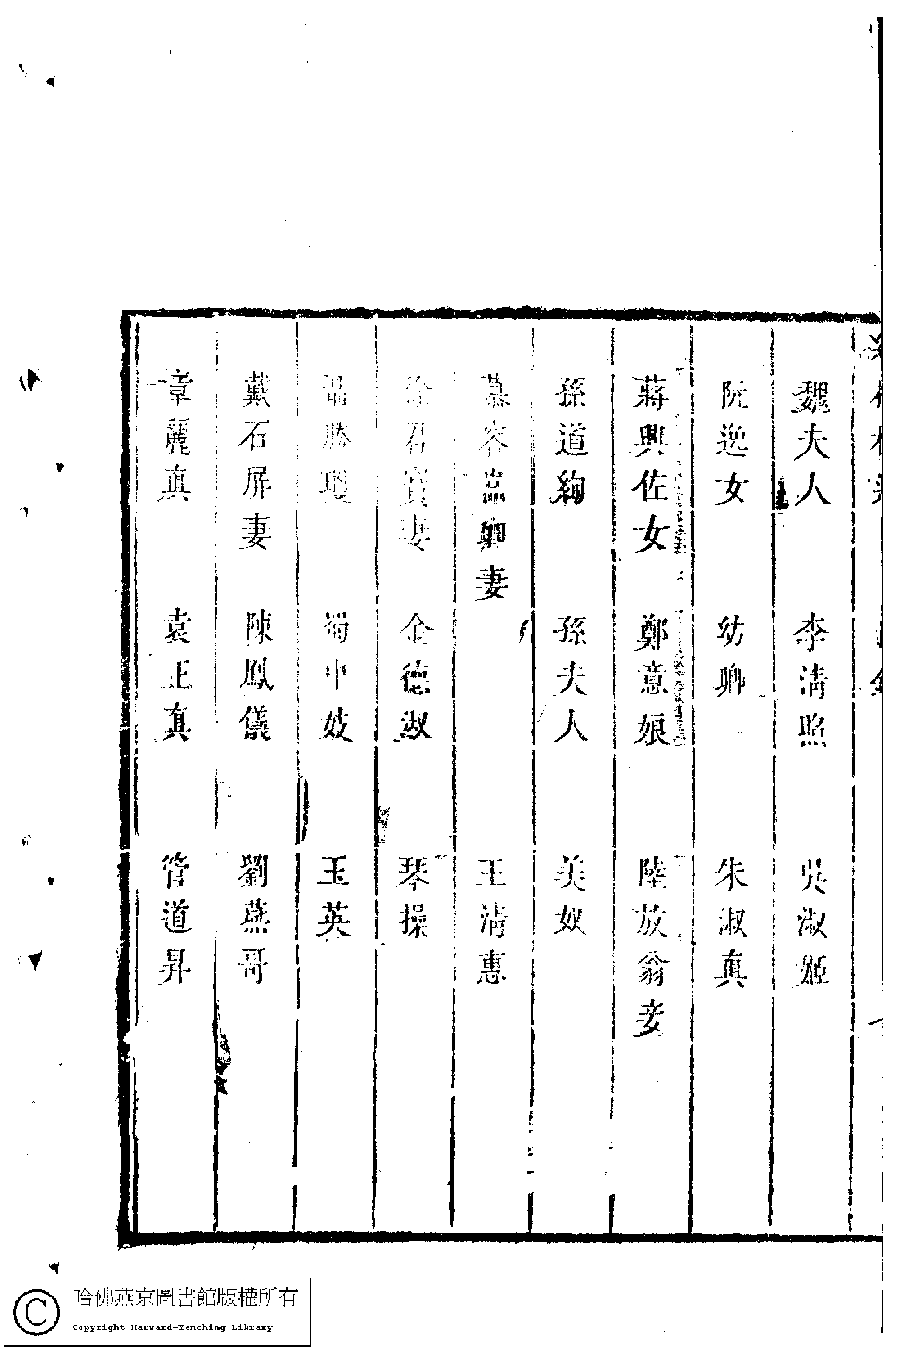 魏夫人　李清照　吳淑姬
阮逸女　幼卿　朱淑真
蔣興佐女　鄭意娘　陸放翁妾
孫道絢　孫夫人　美奴
慕容嵓卿妻　王清惠
徐君寶妻　金德淑　琴操
聶勝瓊　蜀中妓　玉英
戴石屏妻　陳鳳儀　劉燕哥
章麗真　袁正真　管道昇
哈佛燕京圖書館版權所有
Copyright Harvard-Yenching Library